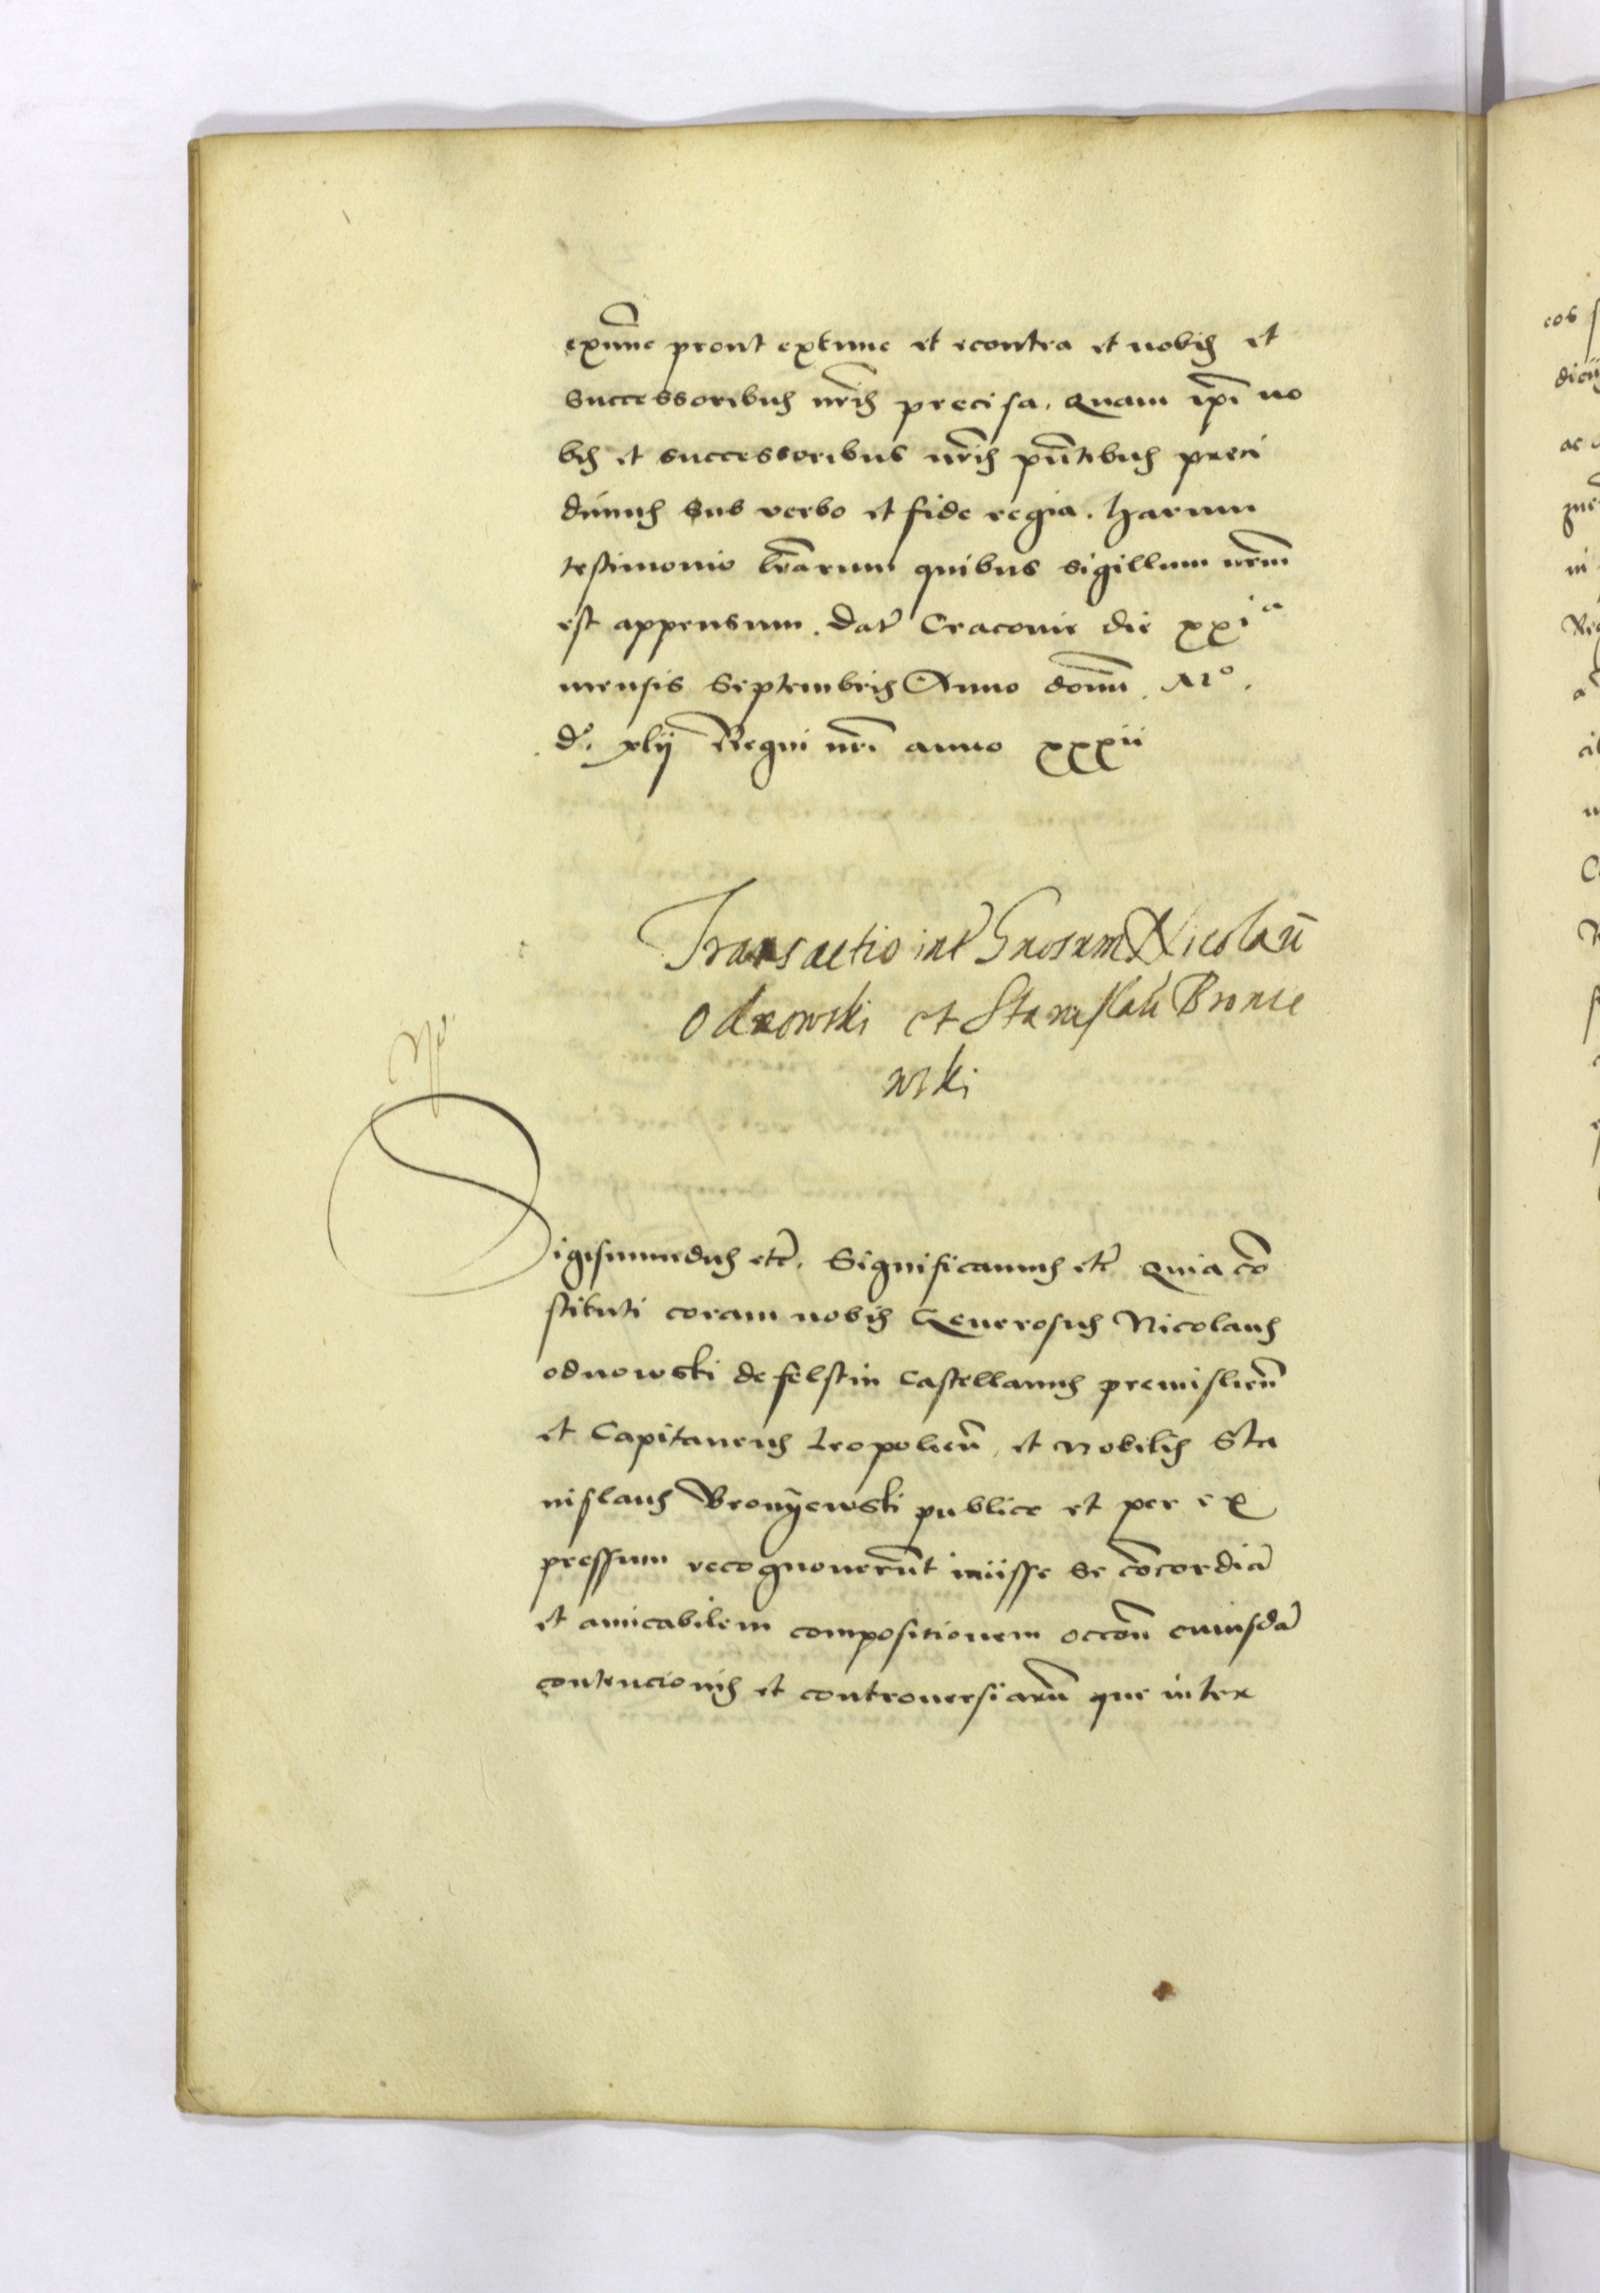 exnūc prout extunc et econtra et nobis et
successoribus nr̄is precisa. Quam ip̄i no
bis et successoribus nr̄is pn̄tibus preci
dimus sub verbo et fide regia. Harum
testimonio lr̄arum quibus sigillum nr̄m
est appensum. Dat̄ Cracovie die xxiᵃ
mensis Septembris Anno domī Mº.
dº. xlij Regni nr̄i anno xxxvi
Transactio int̄ Gnosum Nicolaū
Odnowski et Stanislaū Bronie
wski
Sigismundus etc̄. Significamus etc̄ Quia cō
stituti coram nobis Generosus Nicolaus
odnowski de felstin Castellanus premislien̄
et Capitaneus Leopolien̄ et Nobilis Sta
nislaus Bronÿewski publice et per ex
pressum recognoverūt iniisse se cōcordiā
et amicabilem compositionem occōn̄ cuiusdā
contencionis et controversiarū que inter
eos